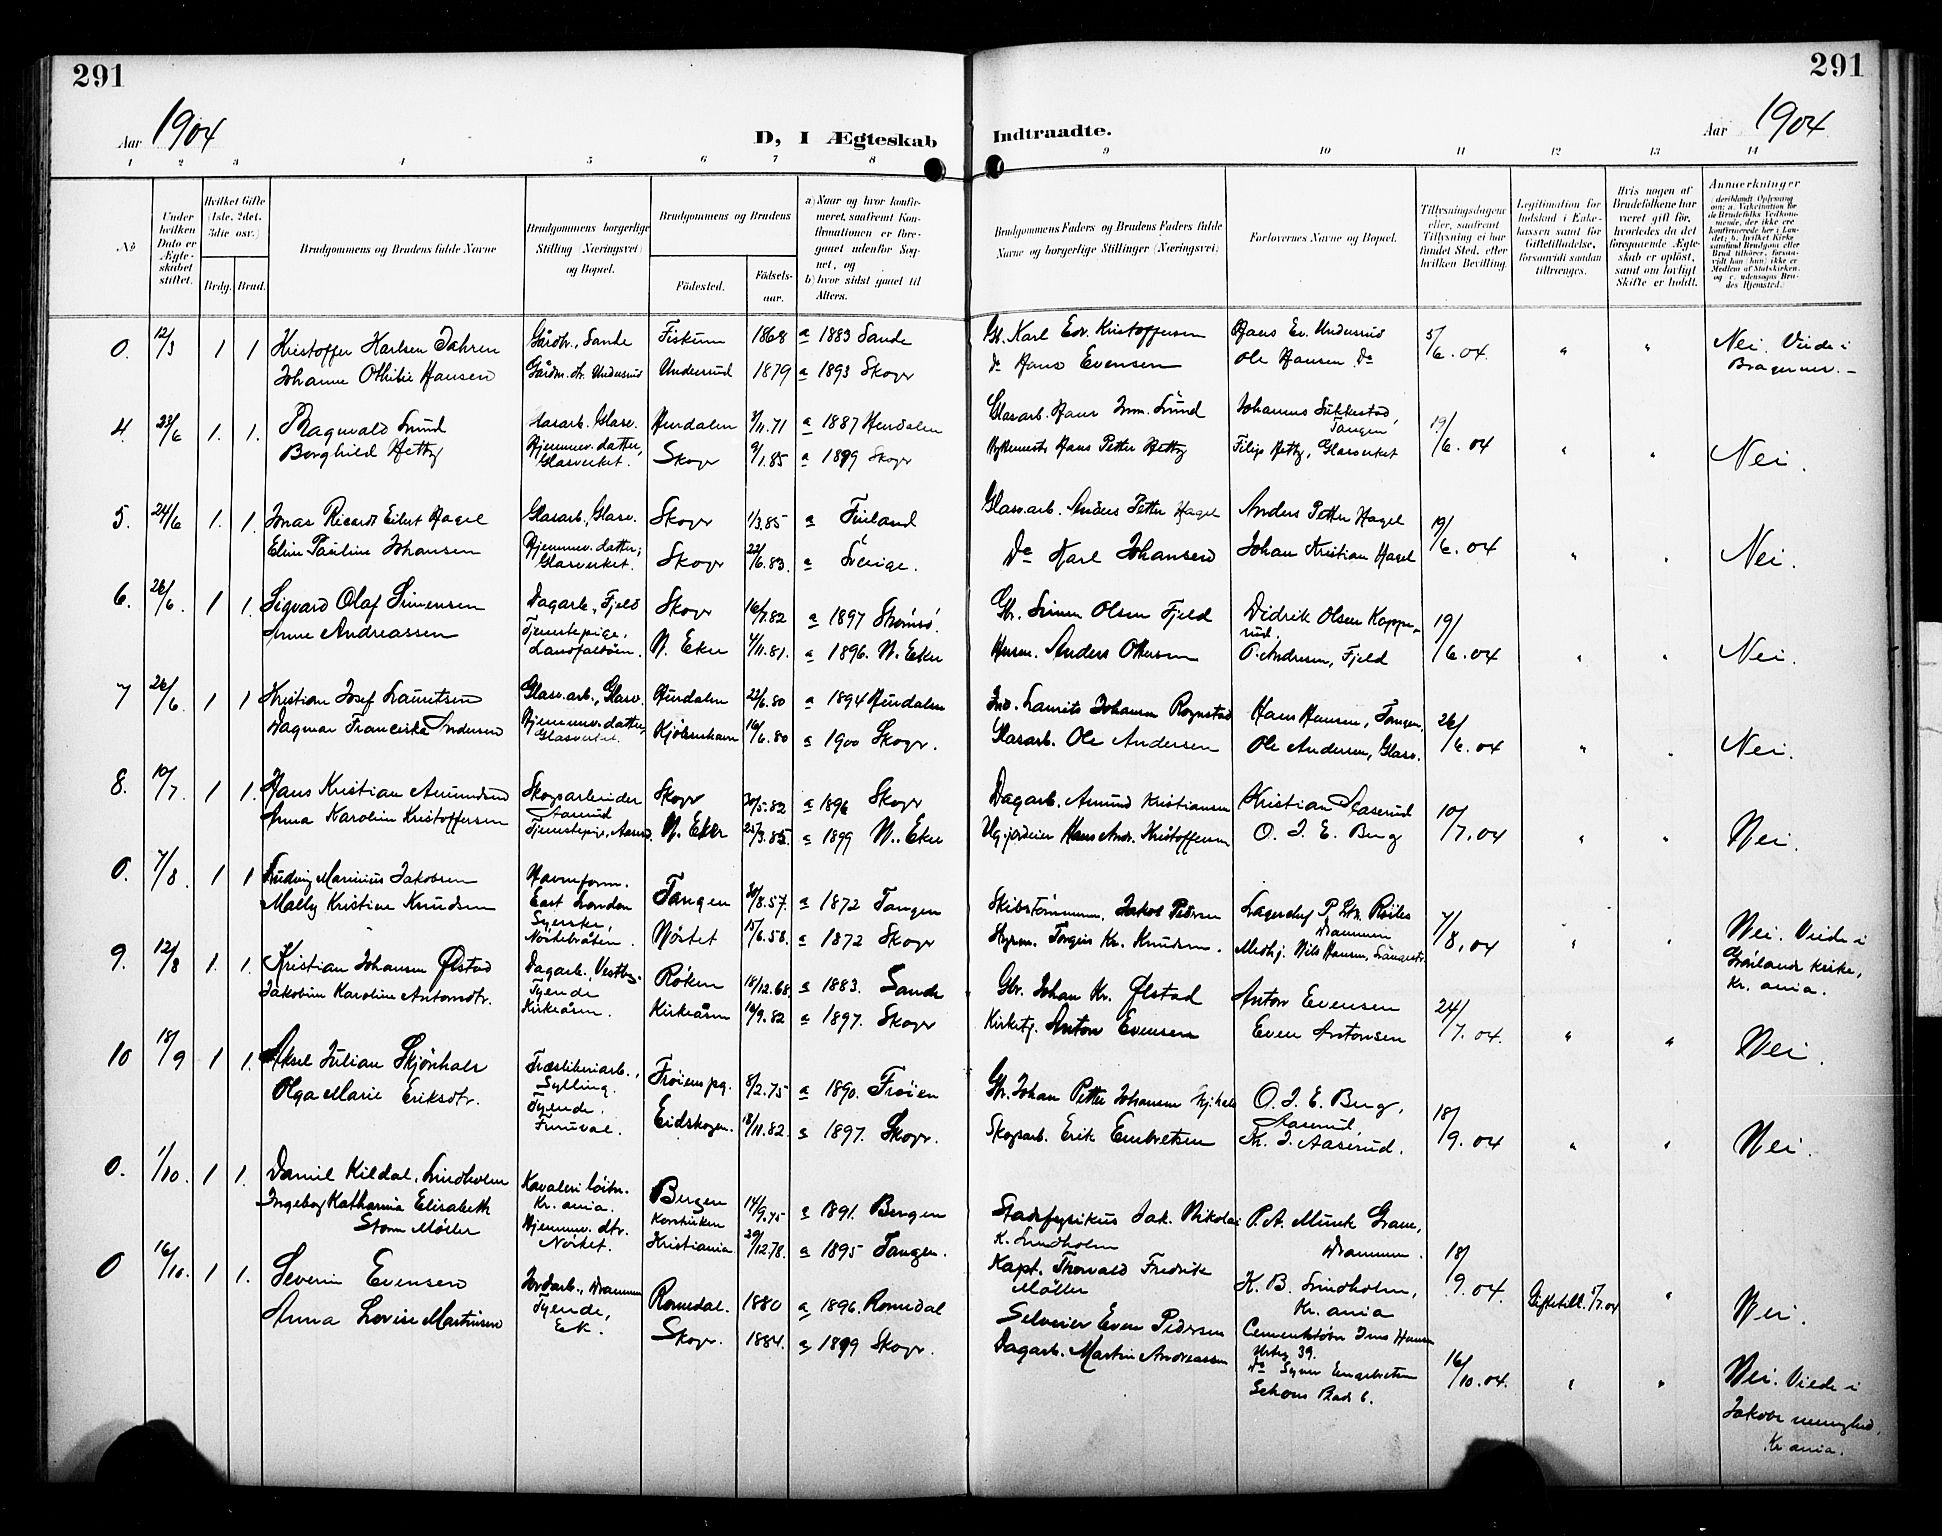 291
291
Aar 1904
D, I Ægteskab Indtraadte.
Aar 1904
1 2 3 4 5 6 7 8 9 10 11 12 13 14
No
Under hvilken Dato er Ægteskabet stiftet.
Hvilket Gifte (1ste, 2det, 3die osv.)
Brdg. Brud.
Brudgommens og Brudens fulde Navne
Brudgommens borgerlige Stilling (Næringsvei) og Bopæl.
Brudgommens og Brudens
Fødested.
Fødselsaar.
a) Naar og hvor konfirmeret, saafremt Konfirmationen er foregaaet udenfor Sognet, og
b) hvor sidst gaaet til Alters.
Brudgommens Faders og Brudens Faders fulde Navne og borgerlige Stillinger (Næringsvei)
Forlovernes Navne og Bopæl.
Tillysningsdagene eller, saafremt Tillysning ei har fundet Sted, efter hvilken Bevilling.
Legitimation for Indskud i Enkekassen samt for Giftetilladelse, forsaavidt saadan tiltrænges.
Hvis nogen af Brudefolkene har været gift før, hvorledes da det foregaaende Ægteskab er opløst, samt om lovligt Skifte er holdt.
Anmerkninger
0. 12/3 1 1 Kristoffer Karlsen Jahren Gårdbr., Sande Fiskum 1868 a 1883 Sande Gb. Karl Edv. Kristoffersen Hans Ev. Undersrud 5/6.04. " " Nei. Viede i
Johanne Othilie Hansen Undersrud 1879 a 1893 Skoger do Hans Evensen Ole Hansen do Bragernes.
4. 23/6 1. 1. Ragnvald Lund Glasarb. Glasv. Hurdalen 3/11.71 a 1887 Hurdalen Glasarb. Hans Imm. Lund Johannes Sukkestad, Tangen 19/6.04 " " Nei.
Borghild Hetty Hjemmev. datter, Glasverket. Skoger 9/1.85 a 1899 Skoger Hans Petter Hetty Filip Hetty, Glasverket
5. 24/6 1. 1. Jonas Ricardt Eilert Hagel Glasarb., Glasv. Skoger 1/3.85 a Finland Glasv.arb. Anders Petter Hagel Anders Petter Hagel 19/6.04 " " Nei.
Eline Pauline Johansen Hjemmev. datter; Glasverket. Skoger 22/6.83. a Sverige. Do Karl Johansen Johan Kristian Hagel
6. 26/6. 1 1. Sigvard Olaf Simensen Dagarb., Fjeld Skoger 16/7.82 a 1897 Strømsø. Gbr. Simen Olsen Fjeld Didrik Olsen Kopperud, 19/6.04 " " Nei.
Anne Andreassen Tjenestepige, Landfaldøen. N. Eker 4/11.81. a 1896. N. Eker Husm. Anders Ottersen O. Andersen, Fjeld
7 26/6 1 1 Kristian Josef Lauritsen Glasv.arb., Glasv. Hurdalen 22/6.80 a 1894 Hurdalen Ind. Laurits Johansen Rognstad Hans Hansen, Tangen, 26/6.04 " " Nei.
Dagmar Franciska Andersen Hjemmev. datter, Glasverket. Kjøbenhavn 16/6.80 a 1900 Skoger. Glasarb. Ole Andersen Ole Andersen, Glasv.
8. 10/7. 1 1. Hans Kristian Amundsen Skogsarbeider Aaserud Skoger 30/5.82 a 1896 Skoger Dagarb. Amund Kristiansen Kristian Aaserud 10/7.04 " " Nei.
Anna Karoline Kristoffersen Tjenestepige, Aaserud. N. Eker 25/3.85. a 1899 N. Eker Hans Andr. Kristoffersen O. J. E. Berg
0. 7/8. 1 1 Ludvig Marinius Jakobsen Havneform. East London Tangen 30/8.57. a 1872 Tangen Skibstømmerm. Jakob Pedersen Lagerchef Drammen 7/8.04 " " Nei. Viede i
Mally Kristine Knudsen Syerske, Nøstebråten. Nøstet 15/6.58. a 1872 Skoger Styrm. Torgius Kr. Knudsen. Nils Hansen, Grønlands Kirke,
Kr.ania.
9. 12/8 1. 1. Kristian Johansen Ølstad Dagarb. Røken 18/12.68. a 1883. Sande Gbr. Johan Kr. Ølstad Anton Evensen 24/7.04. " " Nei.
Jakobine Karoline Antonsdtr. Tjende Kirkeåsen. Kirkeåsen 14/9.82 a 1897. Skoger Kirketj. Anton Evensen Even Antonsen
10 18/9 1 1. Aksel Julian Skjønhals Træsliberiarb., Sylling. Frøiens pg. 8/2.75 a 1890. Frøien Gbr. Johan Petter Johansen O. J. E. Berg, Aaserud, 18/9.04 " " Nei.
Olga Marie Eriksdtr. Tjende. Furuval. Eidskogen. 18/11.82. a 1897. Skoger. Skogsarb. Erik Embretsen Kr. J. Aaserud.
0. 1/10. 1 1. Daniel Kildal Lindholm Kavaleriløitn. Kr.ania. Bergen Korskirken 14/9.75 a 1891. Bergen Stadsfysikus Jak. Nikolai K. Lindholm P. A. Munk Gran, Drammen. 18/9.04. Giftetill. 5/7.04 " Nei.
Ingeborg Katharina Elisabeth Storm Møller Hjemmev. dtr. Nøstet. Kristiania 29/12.78. a 1895 Tangen. Kapt. Thorvald Fredrik Møller K. B. Lindholm, Kr.ania
0 16/10. 1 1. Severin Evensen Jordarb., Drammen Romedal. 1880 a 1896. Romedal Selveier Even Pedersen Cementstøber Jens Hansen 39. 16/10.04. " " Nei. Viede i
Anna Lovise Martinsen Tjende, Eik. Skoger. 1884. a 1899 Skoger. Dagarb. Martin Andreassen Do Syver Engebretsen Schous Pads 6. Jakobs menighed,
Kr.ania.